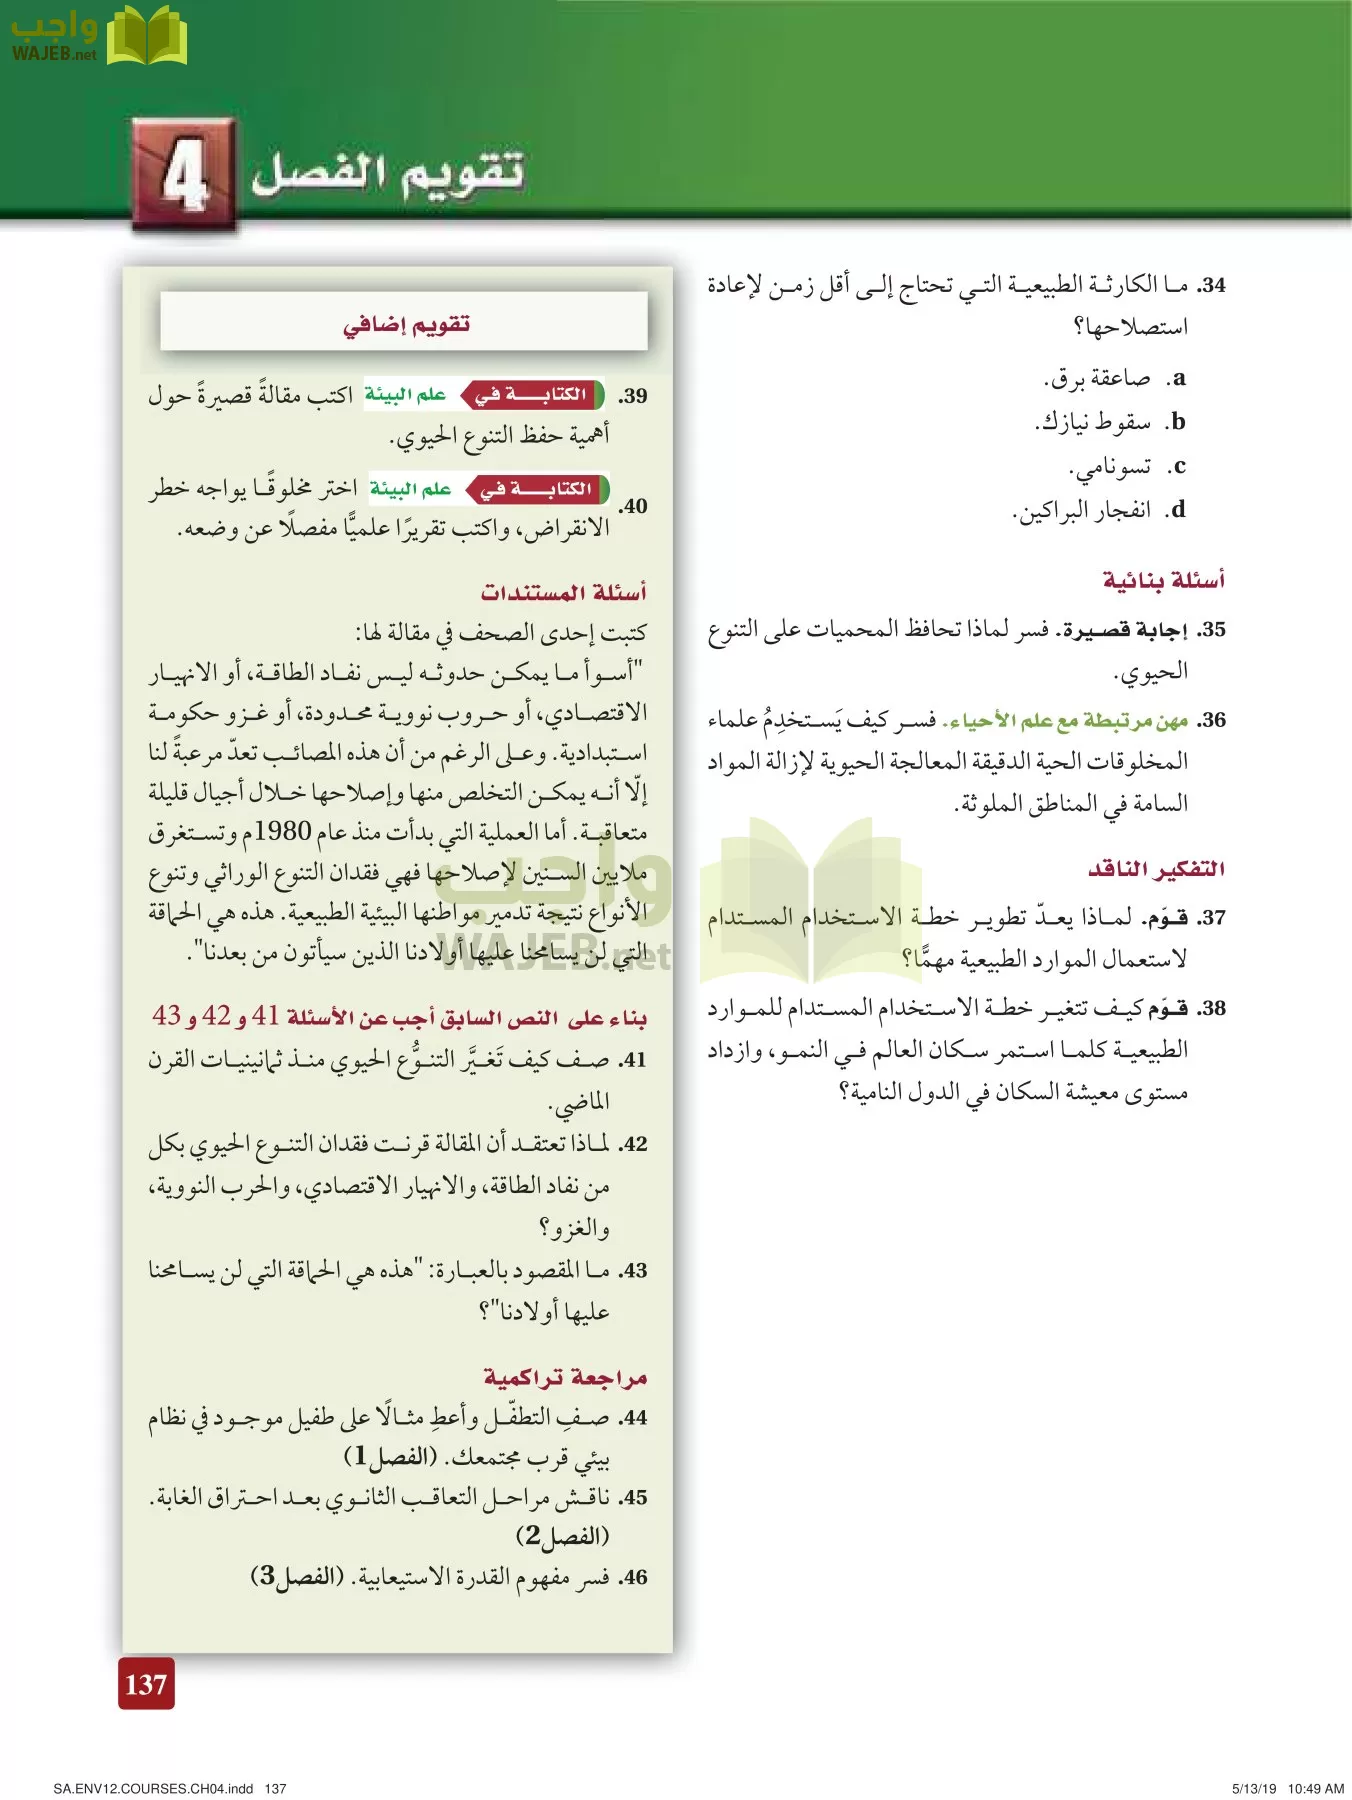 واجب
WAJEB.net
تقويم الفصل 4
34. ما الكارثة الطبيعية التي تحتاج إلى أقل زمن لإعادة
استصلاحها؟
a. صاعقة برق.
b. سقوط نيازك.
c. تسونامي.
d. انفجار البراكين.
أسئلة بنائية
35. إجابة قصيرة. فسر لماذا تحافظ المحميات على التنوع
الحيوي.
36. مهن مرتبطة مع علم الأحياء. فسر كيف يَستخدِمُ علماء
المخلوقات الحية الدقيقة المعالجة الحيوية لإزالة المواد
السامة في المناطق الملوثة.
التفكير الناقد
37. قوّم. لماذا يعدّ تطوير خطة الاستخدام المستدام
لاستعمال الموارد الطبيعية مهمًّا؟
38. قوّم كيف تتغير خطة الاستخدام المستدام للموارد
الطبيعية كلما استمر سكان العالم في النمو، وازداد
مستوى معيشة السكان في الدول النامية؟
تقويم إضافي
39. الكتابة في علم البيئة اكتب مقالةً قصيرةً حول
أهمية حفظ التنوع الحيوي.
40. الكتابة في علم البيئة اختر مخلوقًا يواجه خطر
الانقراض، واكتب تقريرًا علميًّا مفصلًا عن وضعه.
أسئلة المستندات
كتبت إحدى الصحف في مقالة لها:
"أسوأ ما يمكن حدوثه ليس نفاد الطاقة، أو الانهيار
الاقتصادي، أو حروب نووية محدودة، أو غزو حكومة
استبدادية. وعلى الرغم من أن هذه المصائب تعدّ مرعبةً لنا
إلّا أنه يمكن التخلص منها وإصلاحها خلال أجيال قليلة
متعاقبة. أما العملية التي بدأت منذ عام 1980م وتستغرق
ملايين السنين لإصلاحها فهي فقدان التنوع الوراثي وتنوع
الأنواع نتيجة تدمير مواطنها البيئية الطبيعية. هذه هي الحماقة
التي لن يسامحنا عليها أولادنا الذين سيأتون من بعدنا".
بناء على النص السابق أجب عن الأسئلة 41 و 42 و 43
41. صف كيف تَغيَّر التنوُّع الحيوي منذ ثمانينيات القرن
الماضي.
42. لماذا تعتقد أن المقالة قرنت فقدان التنوع الحيوي بكل
من نفاد الطاقة، والانهيار الاقتصادي، والحرب النووية،
والغزو؟
43. ما المقصود بالعبارة: "هذه هي الحماقة التي لن يسامحنا
عليها أولادنا"؟
مراجعة تراكمية
44. صفِ التطفّل وأعطِ مثالًا على طفيل موجود في نظام
بيئي قرب مجتمعك. (الفصل 1)
45. ناقش مراحل التعاقب الثانوي بعد احتراق الغابة.
(الفصل 2)
46. فسر مفهوم القدرة الاستيعابية. (الفصل 3)
واجب
WAJEB.net
137
SA.ENV12.COURSES.CH04.indd 137
5/13/19 10:49 AM